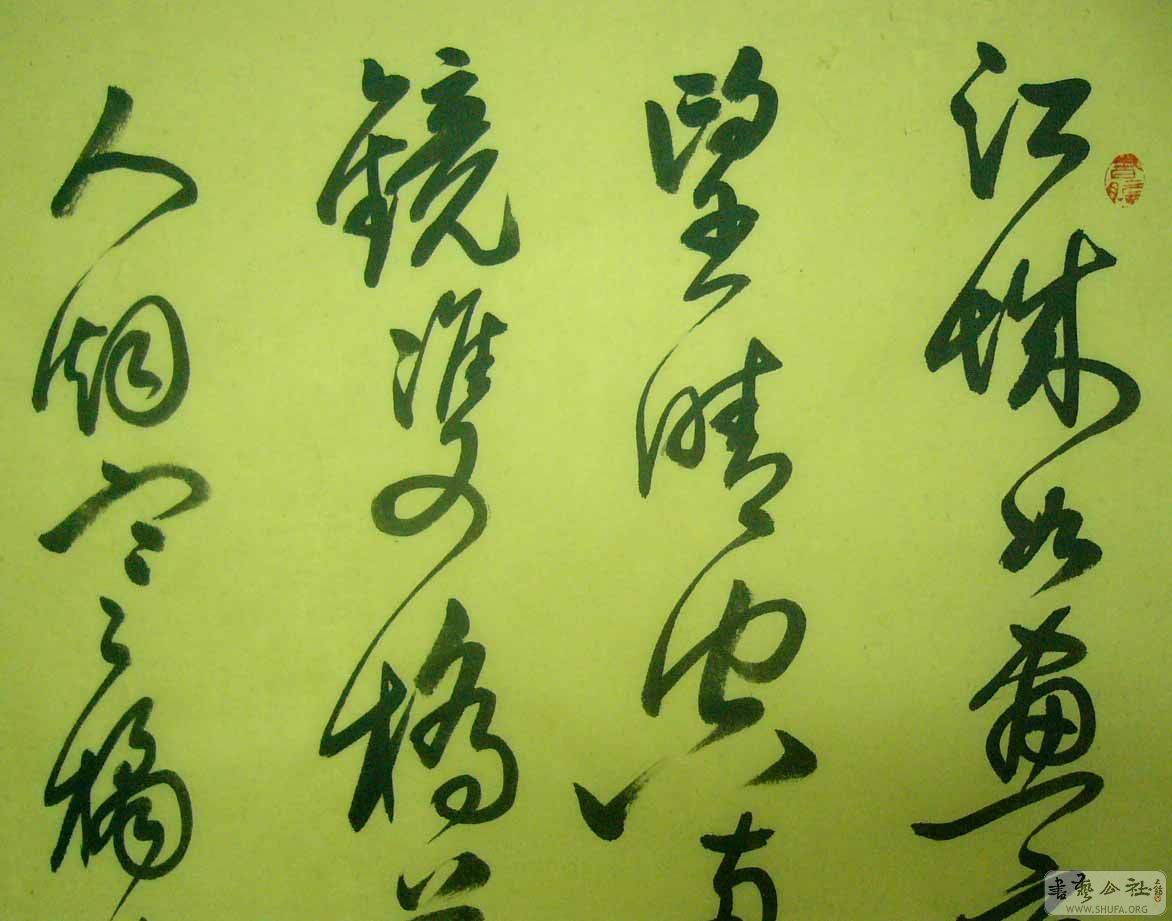 江城如畫
望晴空
鏡雙橋
人烟寒橘
書藝公社
WWW.SHUFA.ORG